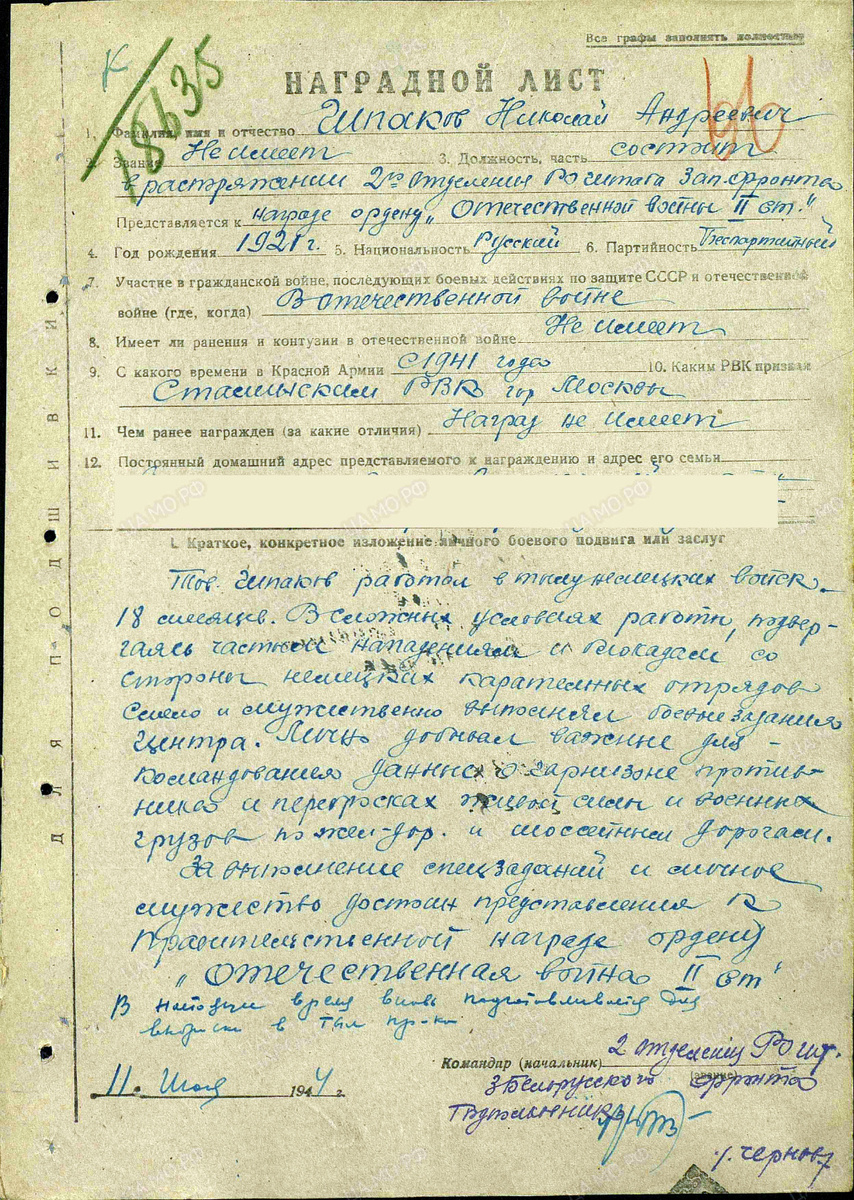 Все графы заполнять полностью
К
18635
НАГРАДНОЙ ЛИСТ
1. Фамилия, имя и отчество Шпаков Николай Андреевич
2. Звание Не имеет 3. Должность, часть состоит
в распряжении 2го отделения РО штаба Зап. фронта
Представляется к награде ордену „Отечественной войны II ст."
4. Год рождения 1921 г. 5. Национальность Русский 6. Партийность Беспартийный
7. Участие в гражданской войне, последующих боевых действиях по защите СССР и отечественной
войне (где, когда) В отечественной войне
8. Имеет ли ранения и контузии в отечественной войне Не имеет
9. С какого времени в Красной Армии с 1941 года 10. Каким РВК призван
Сталинским РВК гор Москвы
11. Чем ранее награжден (за какие отличия) Наград не имеет
12. Постоянный домашний адрес представляемого к награждению и адрес его семьи
I. Краткое, конкретное изложение личного боевого подвига или заслуг
Тов. Шпаков работал в тылу немецких войск
18 месяцев. В сложных условиях работы, подвер-
гаясь частым нападениям и блокадам со
стороны немецких карательных отрядов
смело и мужественно выполнял боевые задания
Центра. Лично добывал важные для
командования данные о гарнизоне против-
ника и перебросках живой силы и военных
грузов по жел-дор. и шоссейным дорогам.
За выполнение спецзаданий и личное
мужество достоин представления к
правительственной награде ордену
„Отечественная война II ст"
В настоящее время вновь подготавливается для
выброски в тыл пр-ка
Командир (начальник) 2 отделения РО шт.
(звание)
3 Белорусского фронта
11 Июля 1944 г.
Подполковник
/. Чернов /
ДЛЯ ПОДШИВКИ